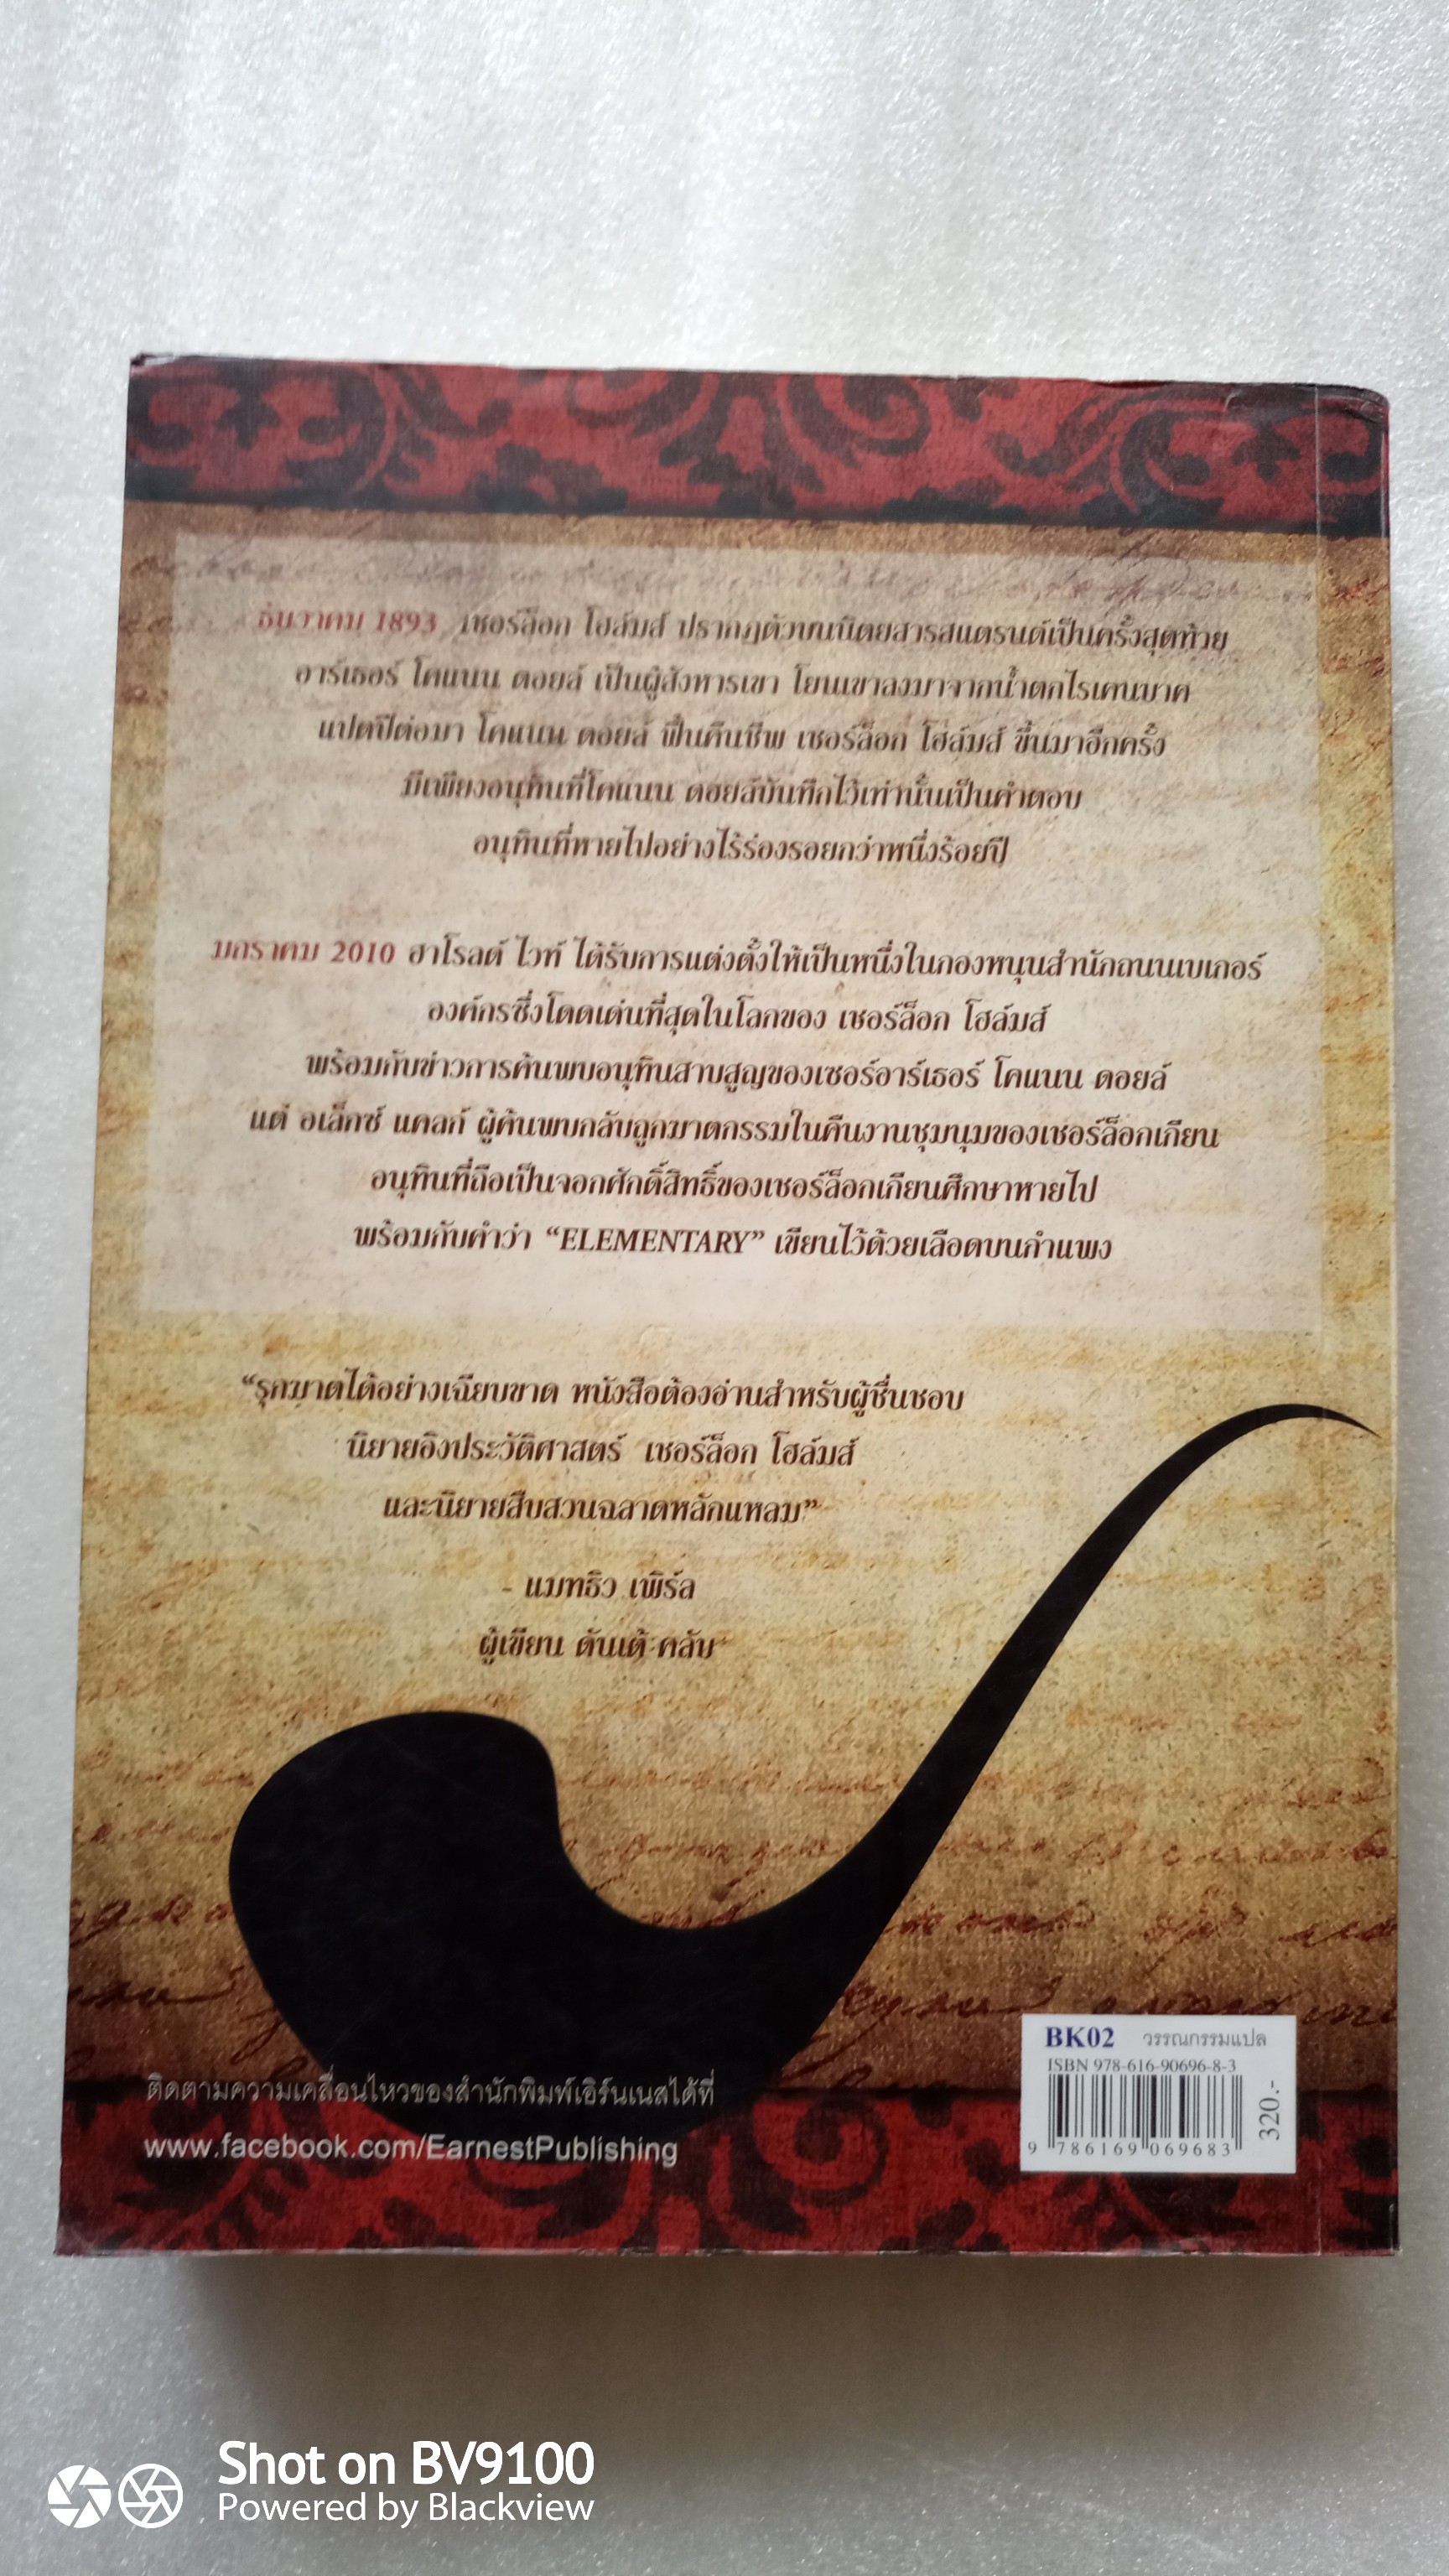 ธันวาคม 1893 เชอร์ล็อก โฮล์มส์ ปรากฏตัวบนนิตยสารสแตรนด์เป็นครั้งสุดท้าย
อาร์เธอร์ โคแนน ดอยล์ เป็นผู้สังหารเขา โยนเขาลงมาจากน้ำตกไรเคนบาค
แปดปีต่อมา โคแนน ดอยล์ ฟื้นคืนชีพ เชอร์ล็อก โฮล์มส์ ขึ้นมาอีกครั้ง
มีเพียงอนุทินที่โคแนน ดอยล์บันทึกไว้เท่านั้นเป็นคำตอบ
อนุทินที่หายไปอย่างไร้ร่องรอยกว่าหนึ่งร้อยปี
มกราคม 2010 ฮาโรลด์ ไวท์ ได้รับการแต่งตั้งให้เป็นหนึ่งในกองหนุนสำนักถนนเบเกอร์
องค์กรซึ่งโดดเด่นที่สุดในโลกของ เชอร์ล็อก โฮล์มส์
พร้อมกับข่าวการค้นพบอนุทินสาบสูญของเซอร์อาร์เธอร์ โคแนน ดอยล์
แต่ อเล็กซ์ แคลก์ ผู้ค้นพบกลับถูกฆาตกรรมในคืนงานชุมนุมของเชอร์ล็อกเกียน
อนุทินที่ถือเป็นจอกศักดิ์สิทธิ์ของเชอร์ล็อกเกียนศึกษาหายไป
พร้อมกับคำว่า “ELEMENTARY” เขียนไว้ด้วยเลือดบนกำแพง
“รุกฆาตได้อย่างเฉียบขาด หนังสือต้องอ่านสำหรับผู้ชื่นชอบ
นิยายอิงประวัติศาสตร์ เชอร์ล็อก โฮล์มส์
และนิยายสืบสวนฉลาดหลักแหลม”
- แมทธิว เพิร์ล
ผู้เขียน ดันเต้ คลับ
BK02 วรรณกรรมแปล
ISBN 978-616-90696-8-3
320.-
9 786169 069683
ติดตามความเคลื่อนไหวของสำนักพิมพ์เอิร์นเนสได้ที่
www.facebook.com/EarnestPublishing
Shot on BV9100
Powered by Blackview